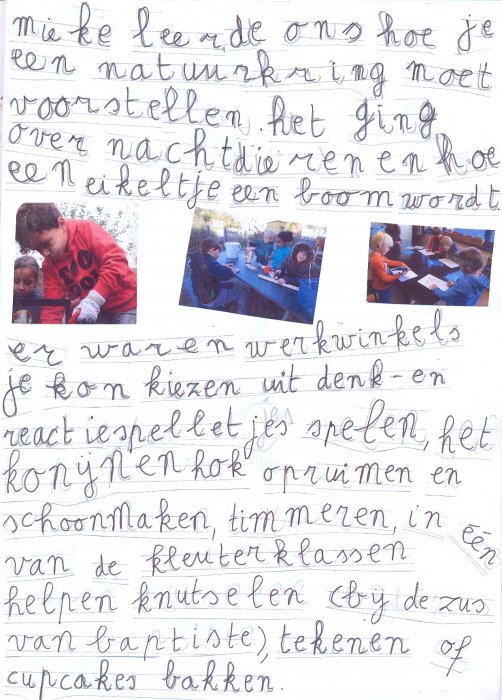 mieke leerde ons hoe je
een natuurkring moet
voorstellen. het ging
over nachtdieren en hoe
een eikeltje een boom wordt.
er waren werkwinkels
je kon kiezen uit denk-en
reactiespelletjes spelen, het
konijnenhok opruimen en
schoonmaken, timmeren, in één
van de kleuterklassen
helpen knutselen (bij de zus
van baptiste), tekenen of
cupcakes bakken.